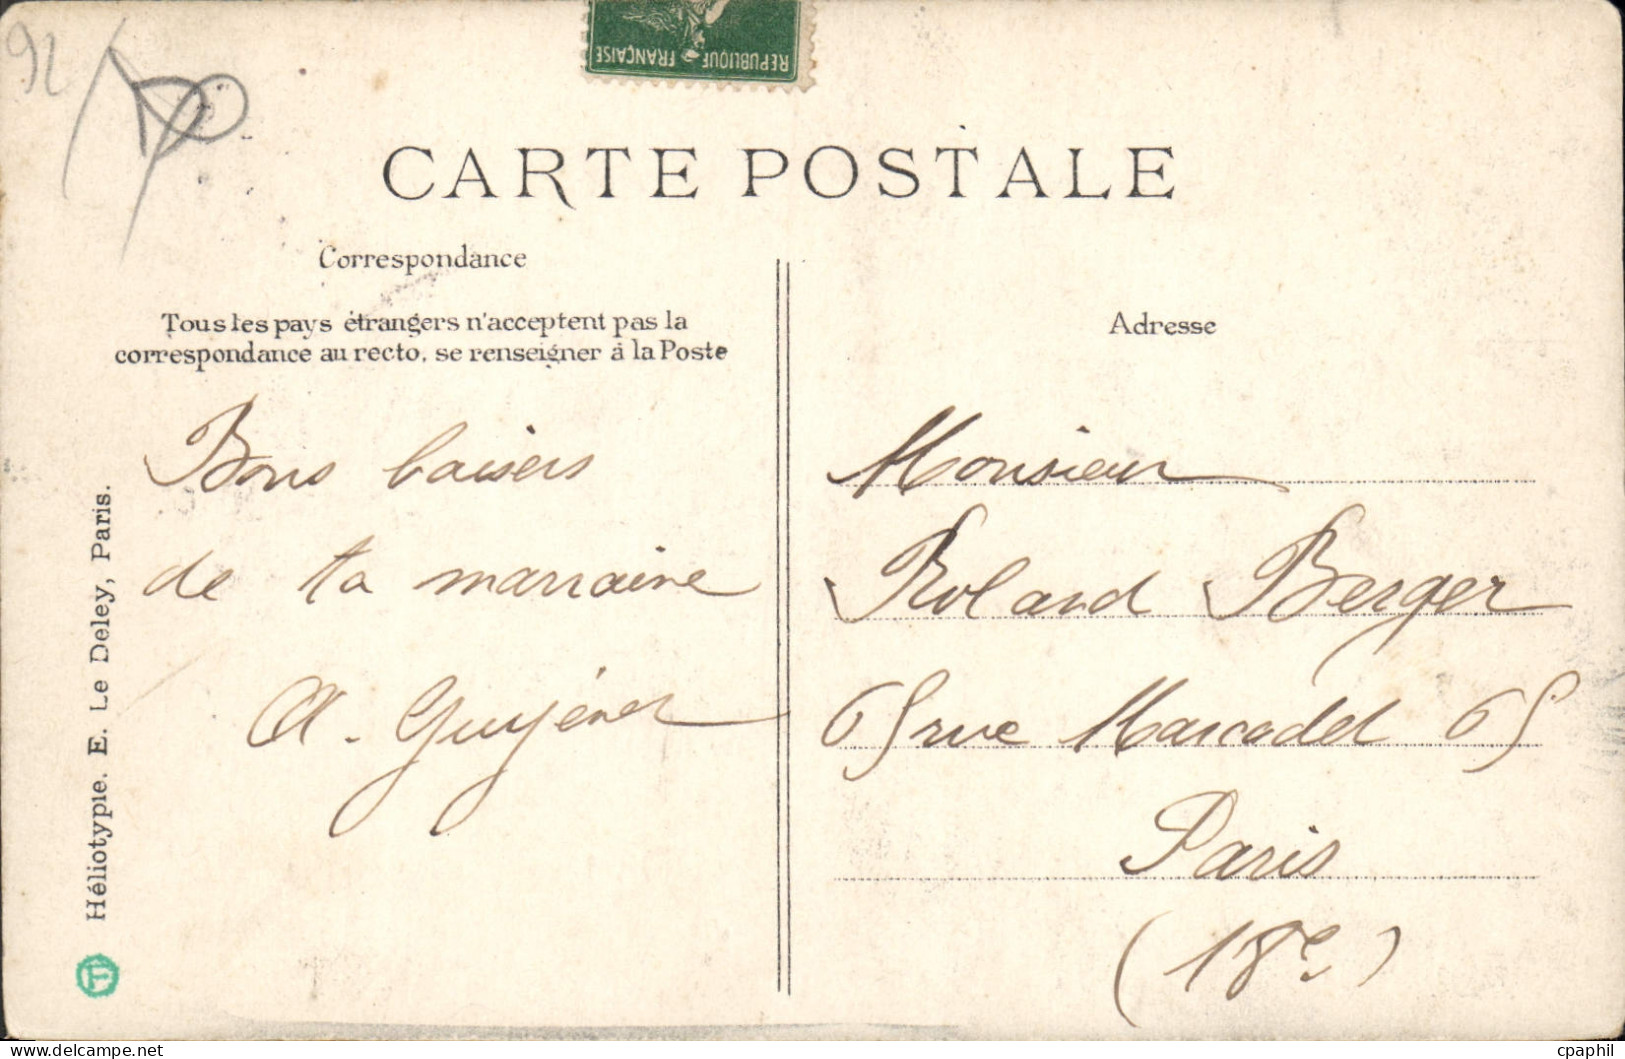 92
REPUBLIQUE FRANÇAISE
CARTE POSTALE
Correspondance
Tous les pays étrangers n'acceptent pas la
correspondance au recto, se renseigner à la Poste
Bons baisers
de ta marraine
A. Guyénet
Adresse
Monsieur
Roland Berger
65 rue Marcadet 65
Paris
(18e)
Héliotypie. E. Le Deley, Paris.
cpaphil
delcampe.net